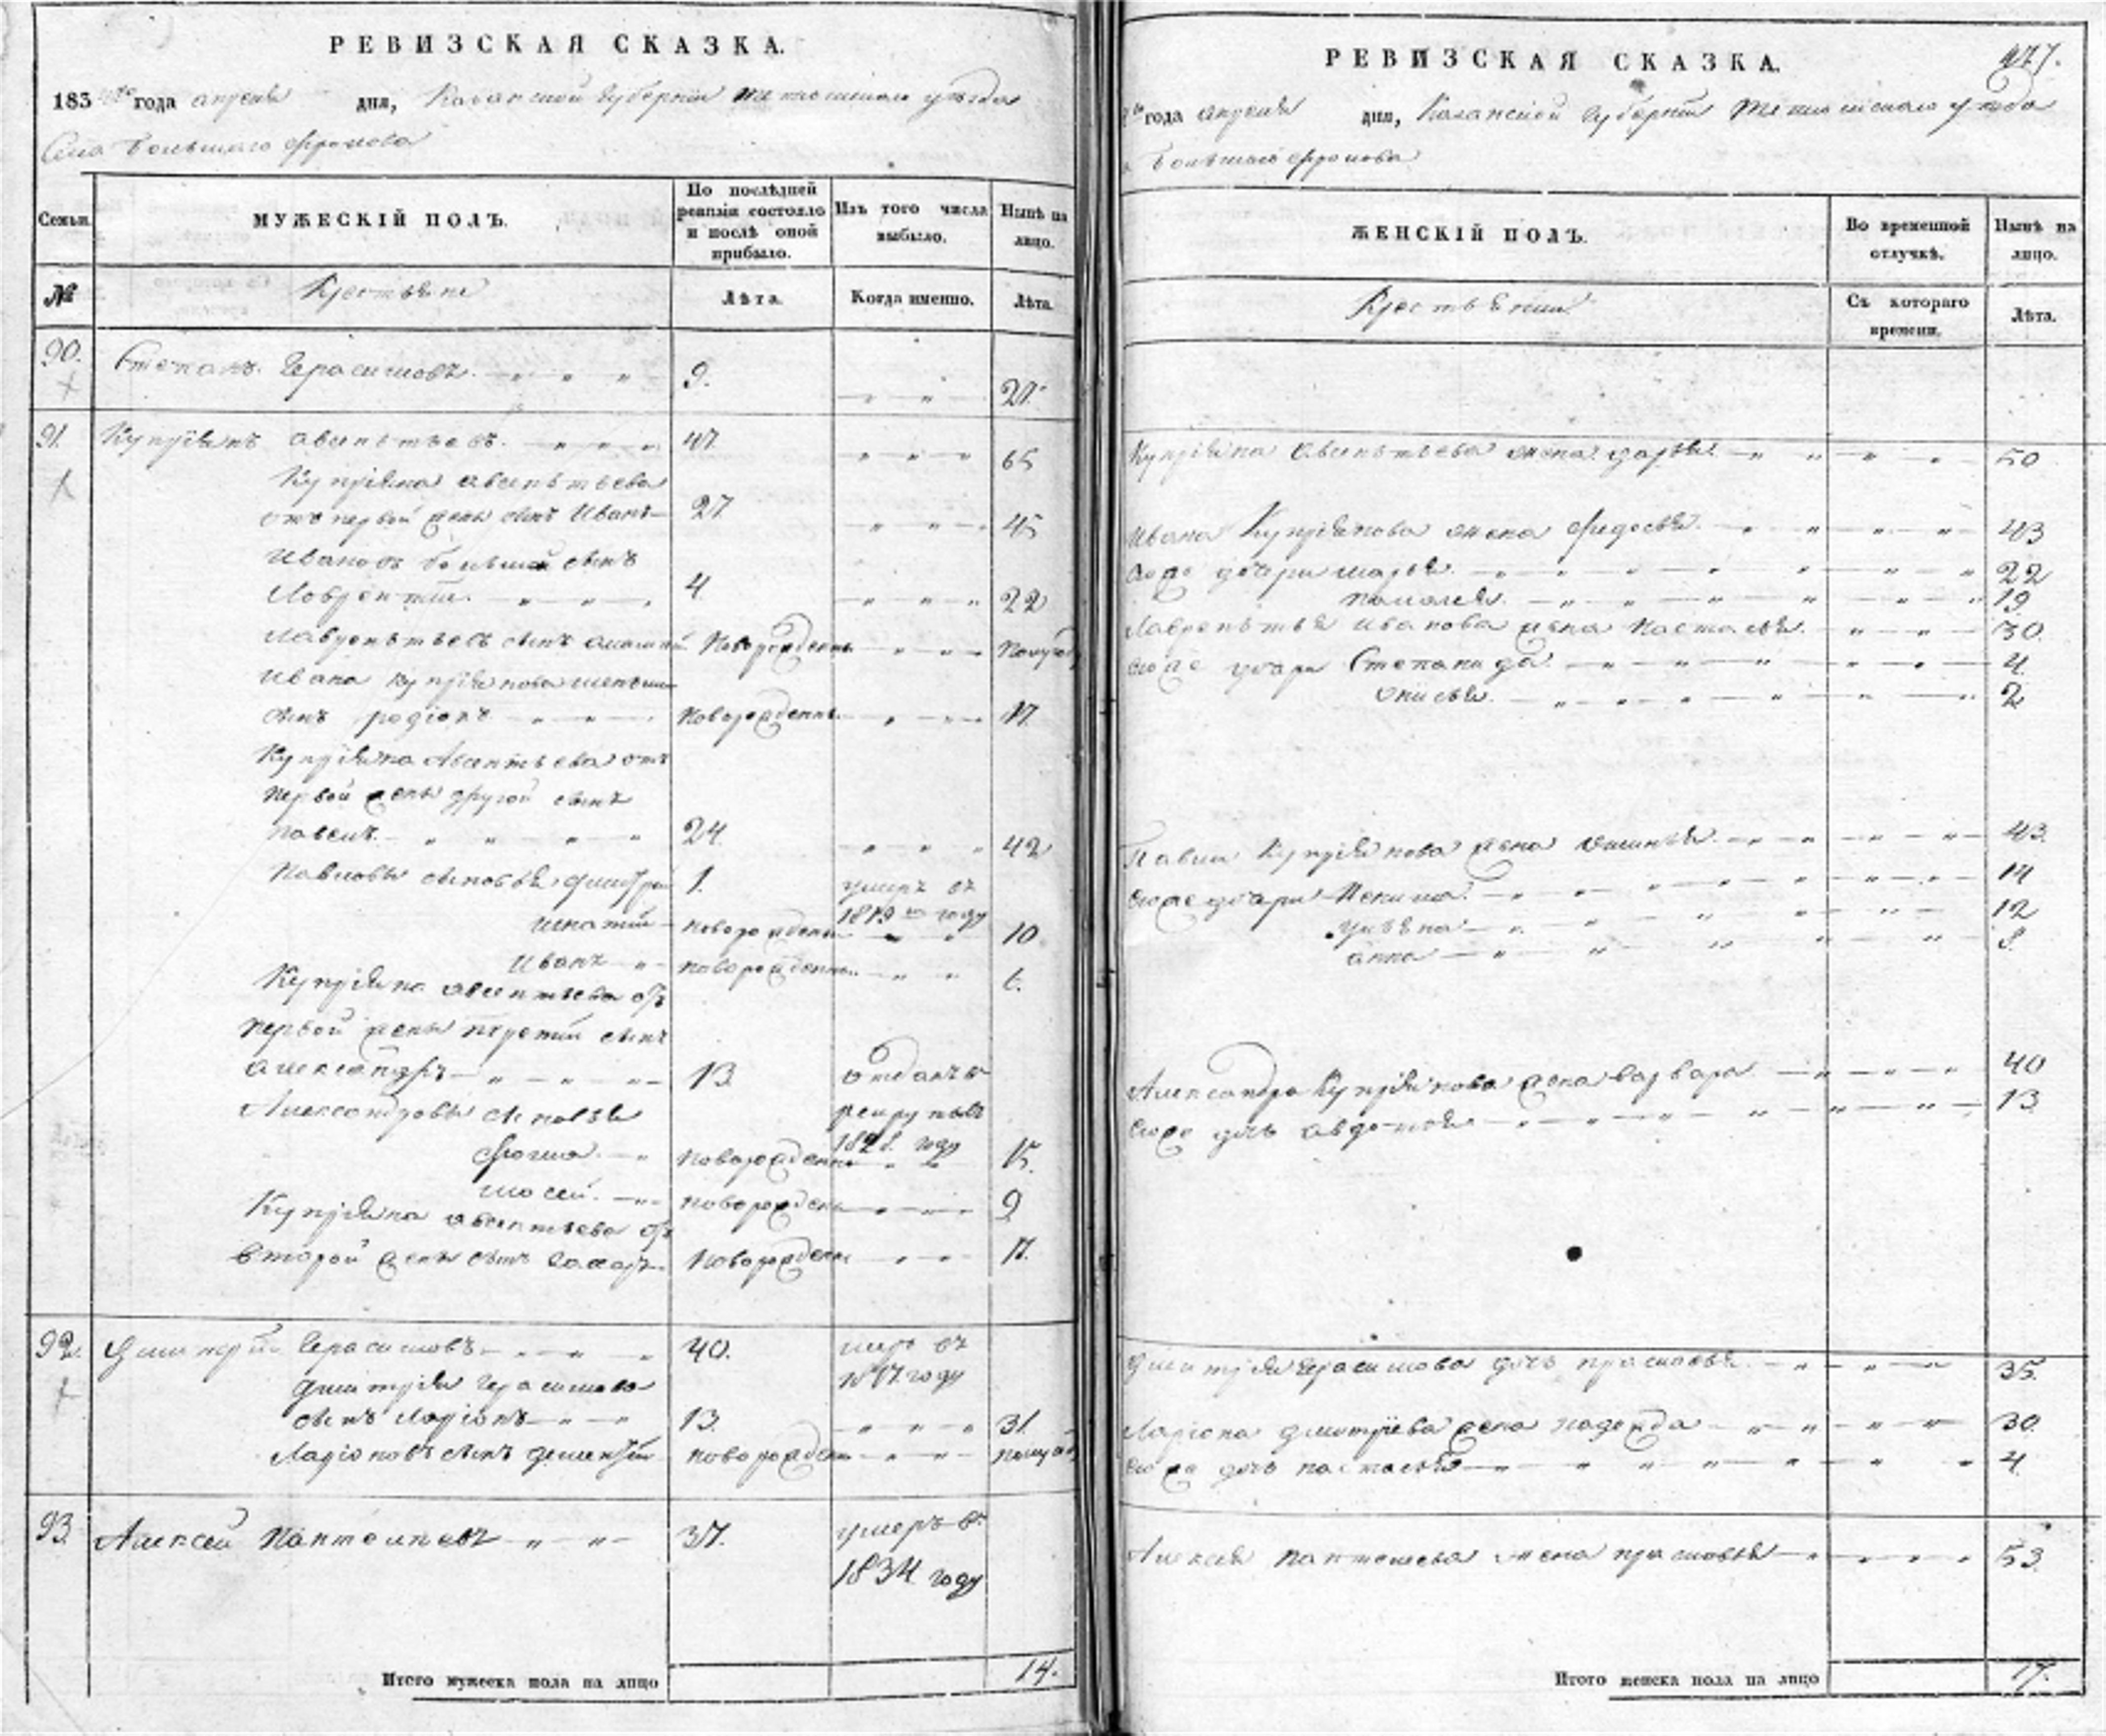 РЕВИЗСКАЯ СКАЗКА.
183 года апреля дня, Казанской губернии Тетюшскаго уезда
Села Большаго Фролова
Семьи. МУЖЕСКІЙ ПОЛЪ. По послѣдней ревизіи состояло и послѣ оной прибыло. Изъ того числа выбыло. Нынѣ на лицо.
№ Крестьяне Лѣта. Когда именно. Лѣта.
90. Степанъ Герасимовъ 9. 27.
91. Купріянъ 47 65
Купріяна
отъ первой жены сынъ Иванъ 27 45
Ивановъ большей сынъ
Лаврентій 4 22
Лаврентьевъ сынъ Новорожденъ
Ивана Купріянова меньшій
сынъ родіонъ Новорожденъ 17.
Купріяна отъ
первой жены другой сынъ
павелъ 24. 42
Павловы сыновья Дмитрей 1. умеръ въ
игнатій новорожденъ 1819 году 10
Иванъ новорожденъ 6.
Купріяна отъ
первой жены третій сынъ
александръ 13 отданъ въ
Александровы сыновья рекруты въ
Фома новорожденъ 1828. году 15.
мосей новорожденъ 9
Купріяна отъ
второй жены сынъ захаръ Новорожденъ 17.
92. Дмитрей Герасимовъ 40. умеръ въ
Дмитрія Герасимова 1817 году
сынъ Ларіонъ 13. 31.
Ларіоновъ сынъ дементей новорожденъ
93. Алексей Пантелѣевъ 37. умеръ въ
1834 году
Итого мужеска пола на лицо 14.
РЕВИЗСКАЯ СКАЗКА.
477.
года апреля дня, Казанской губерніи Тетюшскаго уезда
Большаго Фролова
ЖЕНСКІЙ ПОЛЪ. Во временной отлучкѣ. Нынѣ на лицо.
Крестьянки Съ котораго времени. Лѣта.
Купріяна жена дарья 50
Ивана Купріянова жена Федосья 43
дочери марья 22
19
Лаврентья иванова жена настасья 30.
дочери Степанида 4.
2
Павла Купріянова жена 43.
дочери 14
ульяна 12
анна 8.
Александра Купріянова жена варвара 40
дочь авдотья 13
Дмитрія герасимова дочь прасковья 35.
Ларіона дмитріева жена надежда 30.
дочь настасья 4.
Алексея пантелеева жена прасковья 53
Итого женска пола на лицо 17.